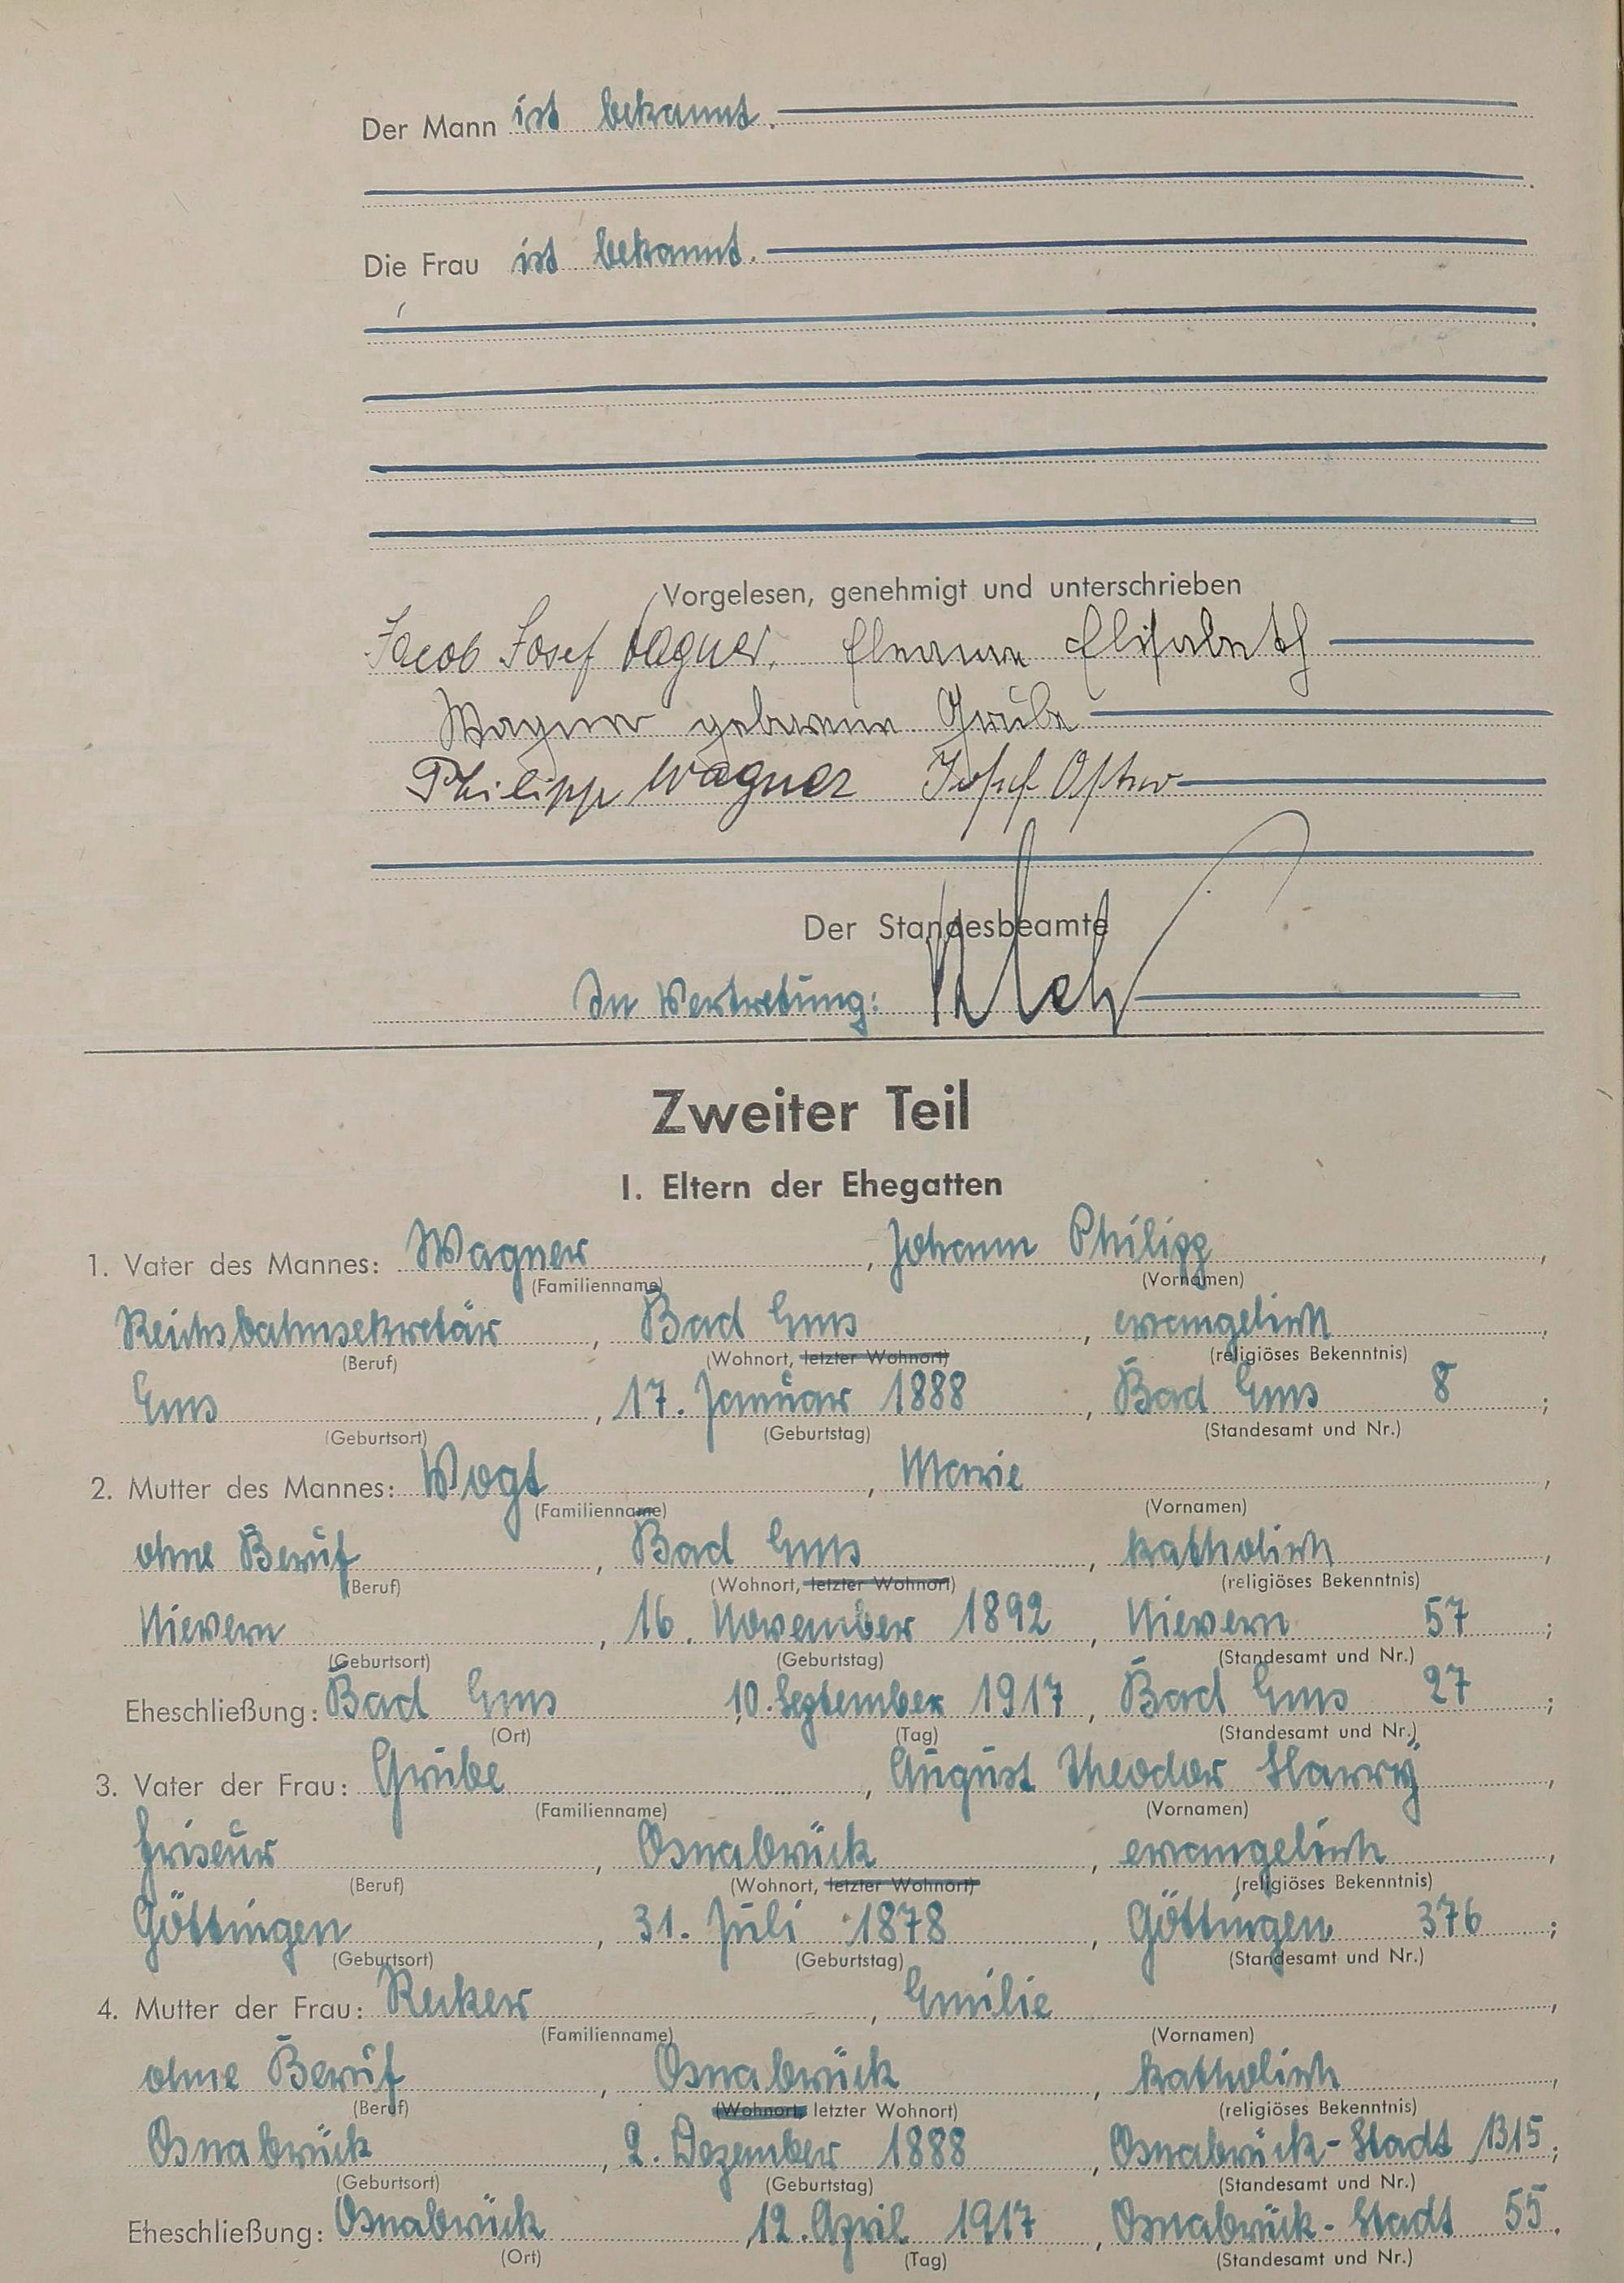 Der Mann ist bekannt.
Die Frau ist bekannt.
Vorgelesen, genehmigt und unterschrieben
Jacob Josef Wagner. Elisabeth
Wagner geborene Grube
Philipp Wagner Josef
Der Standesbeamte
In Vertretung:
Zweiter Teil
I. Eltern der Ehegatten
1. Vater des Mannes: Wagner, Johann Philipp,
(Familienname) (Vornamen)
Reichsbahnsekretär, Bad Ems, evangelisch,
(Beruf) (Wohnort, letzter Wohnort) (religiöses Bekenntnis)
Ems, 17. Januar 1888, Bad Ems 8;
(Geburtsort) (Geburtstag) (Standesamt und Nr.)
2. Mutter des Mannes: Vogt, Marie,
(Familienname) (Vornamen)
ohne Beruf, Bad Ems, katholisch,
(Beruf) (Wohnort, letzter Wohnort) (religiöses Bekenntnis)
Nievern, 16. November 1892, Nievern 57;
(Geburtsort) (Geburtstag) (Standesamt und Nr.)
Eheschließung: Bad Ems 10. September 1917, Bad Ems 27;
(Ort) (Tag) (Standesamt und Nr.)
3. Vater der Frau: Grube, August Theodor Harry,
(Familienname) (Vornamen)
Friseur, Osnabrück, evangelisch,
(Beruf) (Wohnort, letzter Wohnort) (religiöses Bekenntnis)
Göttingen, 31. Juli 1878, Göttingen 376;
(Geburtsort) (Geburtstag) (Standesamt und Nr.)
4. Mutter der Frau: Recker, Emilie,
(Familienname) (Vornamen)
ohne Beruf, Osnabrück, katholisch,
(Beruf) (Wohnort, letzter Wohnort) (religiöses Bekenntnis)
Osnabrück, 2. Dezember 1888, Osnabrück-Stadt 1315;
(Geburtsort) (Geburtstag) (Standesamt und Nr.)
Eheschließung: Osnabrück, 12. April 1917, Osnabrück-Stadt 55.
(Ort) (Tag) (Standesamt und Nr.)